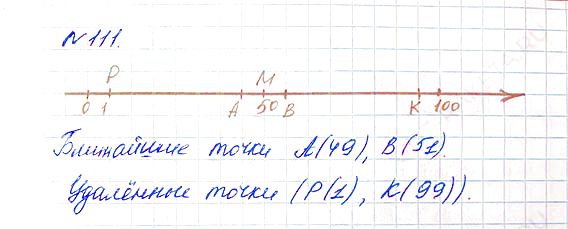 №111.
P M
0 1 A 50 B K 100
Ближайшие точки A(49), B(51).
Удалённые точки (P(1), K(99)).